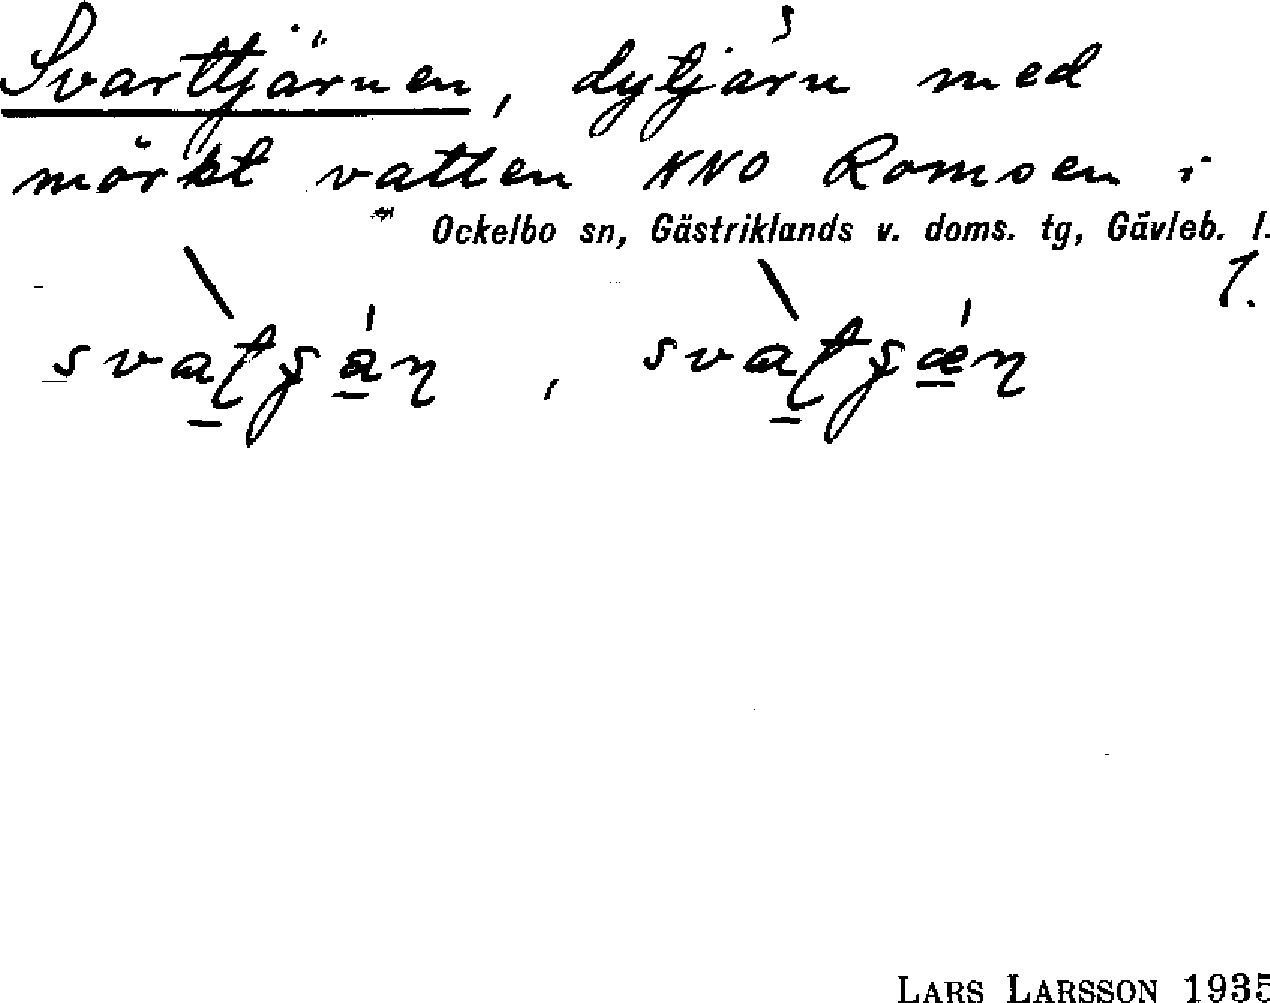 Svarttjärnen, dytjärn med
mörkt vatten NNO Romsen i
Ockelbo sn, Gästriklands v. doms. tg, Gävleb. l.
1.
LARS LARSSON 1935